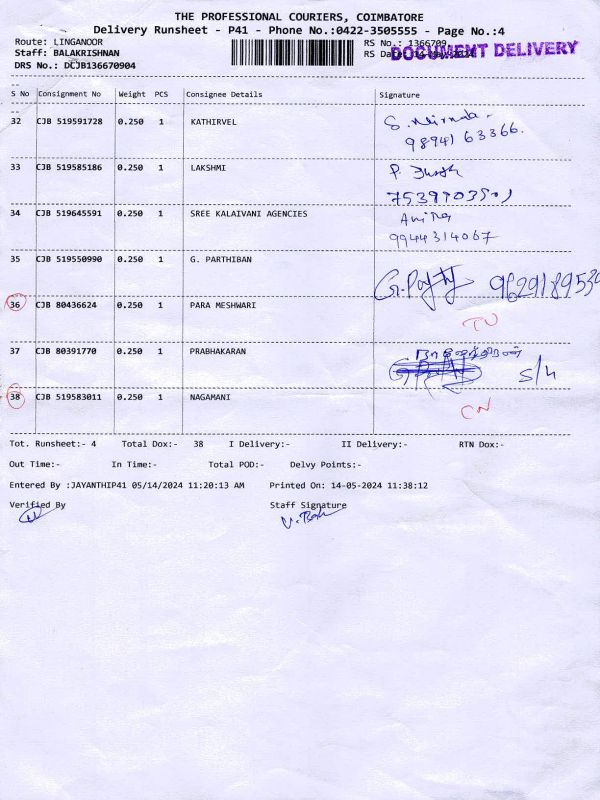 THE PROFESSIONAL COURIERS, COIMBATORE
Delivery Runsheet - P41 - Phone No.:0422-3505555 - Page No.:4
Route: LINGANOOR
RS No.: 1366709
Staff: BALAKRISHNAN
RS Date: 14-May-2024
DOCUMENT DELIVERY
DRS No.: DCJB136670904
S No Consignment No Weight PCS Consignee Details Signature
32 CJB 519591728 0.250 1 KATHIRVEL
98941 63366.
33 CJB 519585186 0.250 1 LAKSHMI
34 CJB 519645591 0.250 1 SREE KALAIVANI AGENCIES
9944314067
35 CJB 519550990 0.250 1 G. PARTHIBAN
36 CJB 80436624 0.250 1 PARA MESHWARI
37 CJB 80391770 0.250 1 PRABHAKARAN
38 CJB 519583011 0.250 1 NAGAMANI
CN
Tot. Runsheet:- 4 Total Dox:- 38 I Delivery:- II Delivery:- RTN Dox:-
Out Time:- In Time:- Total POD:- Delvy Points:-
Entered By :JAYANTHIP41 05/14/2024 11:20:13 AM Printed On: 14-05-2024 11:38:12
Verified By Staff Signature